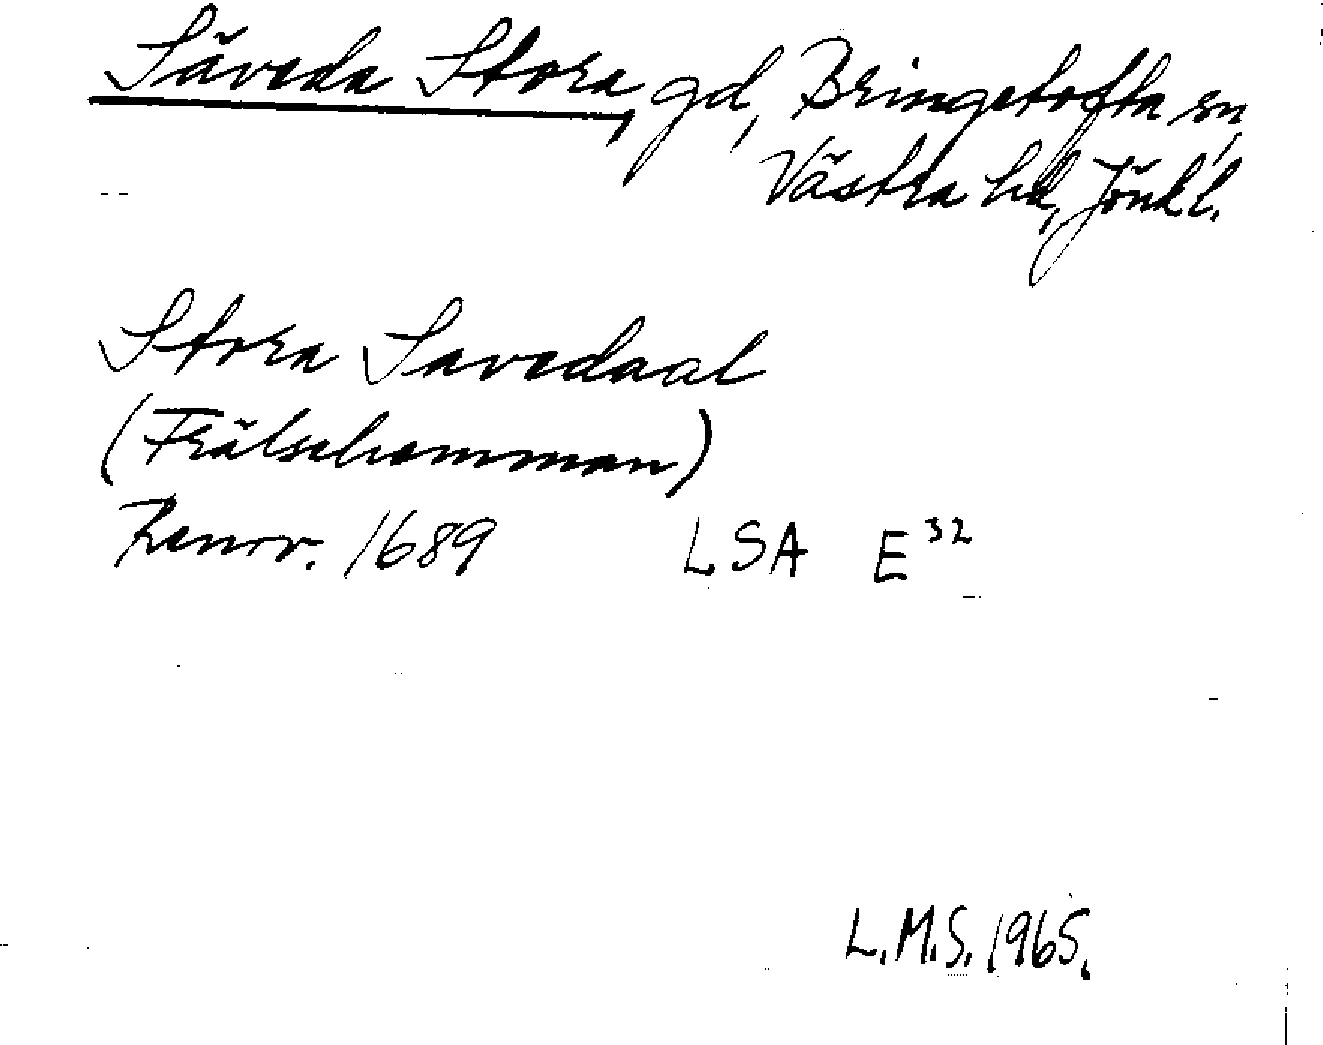 Säveda Stora, gd, Bringetofta sn,
Västra hd, Jönk l.
Stora Savedaal
(Frälsehemman)
Renov. 1689 LSA E³²
L.M.S. 1965.